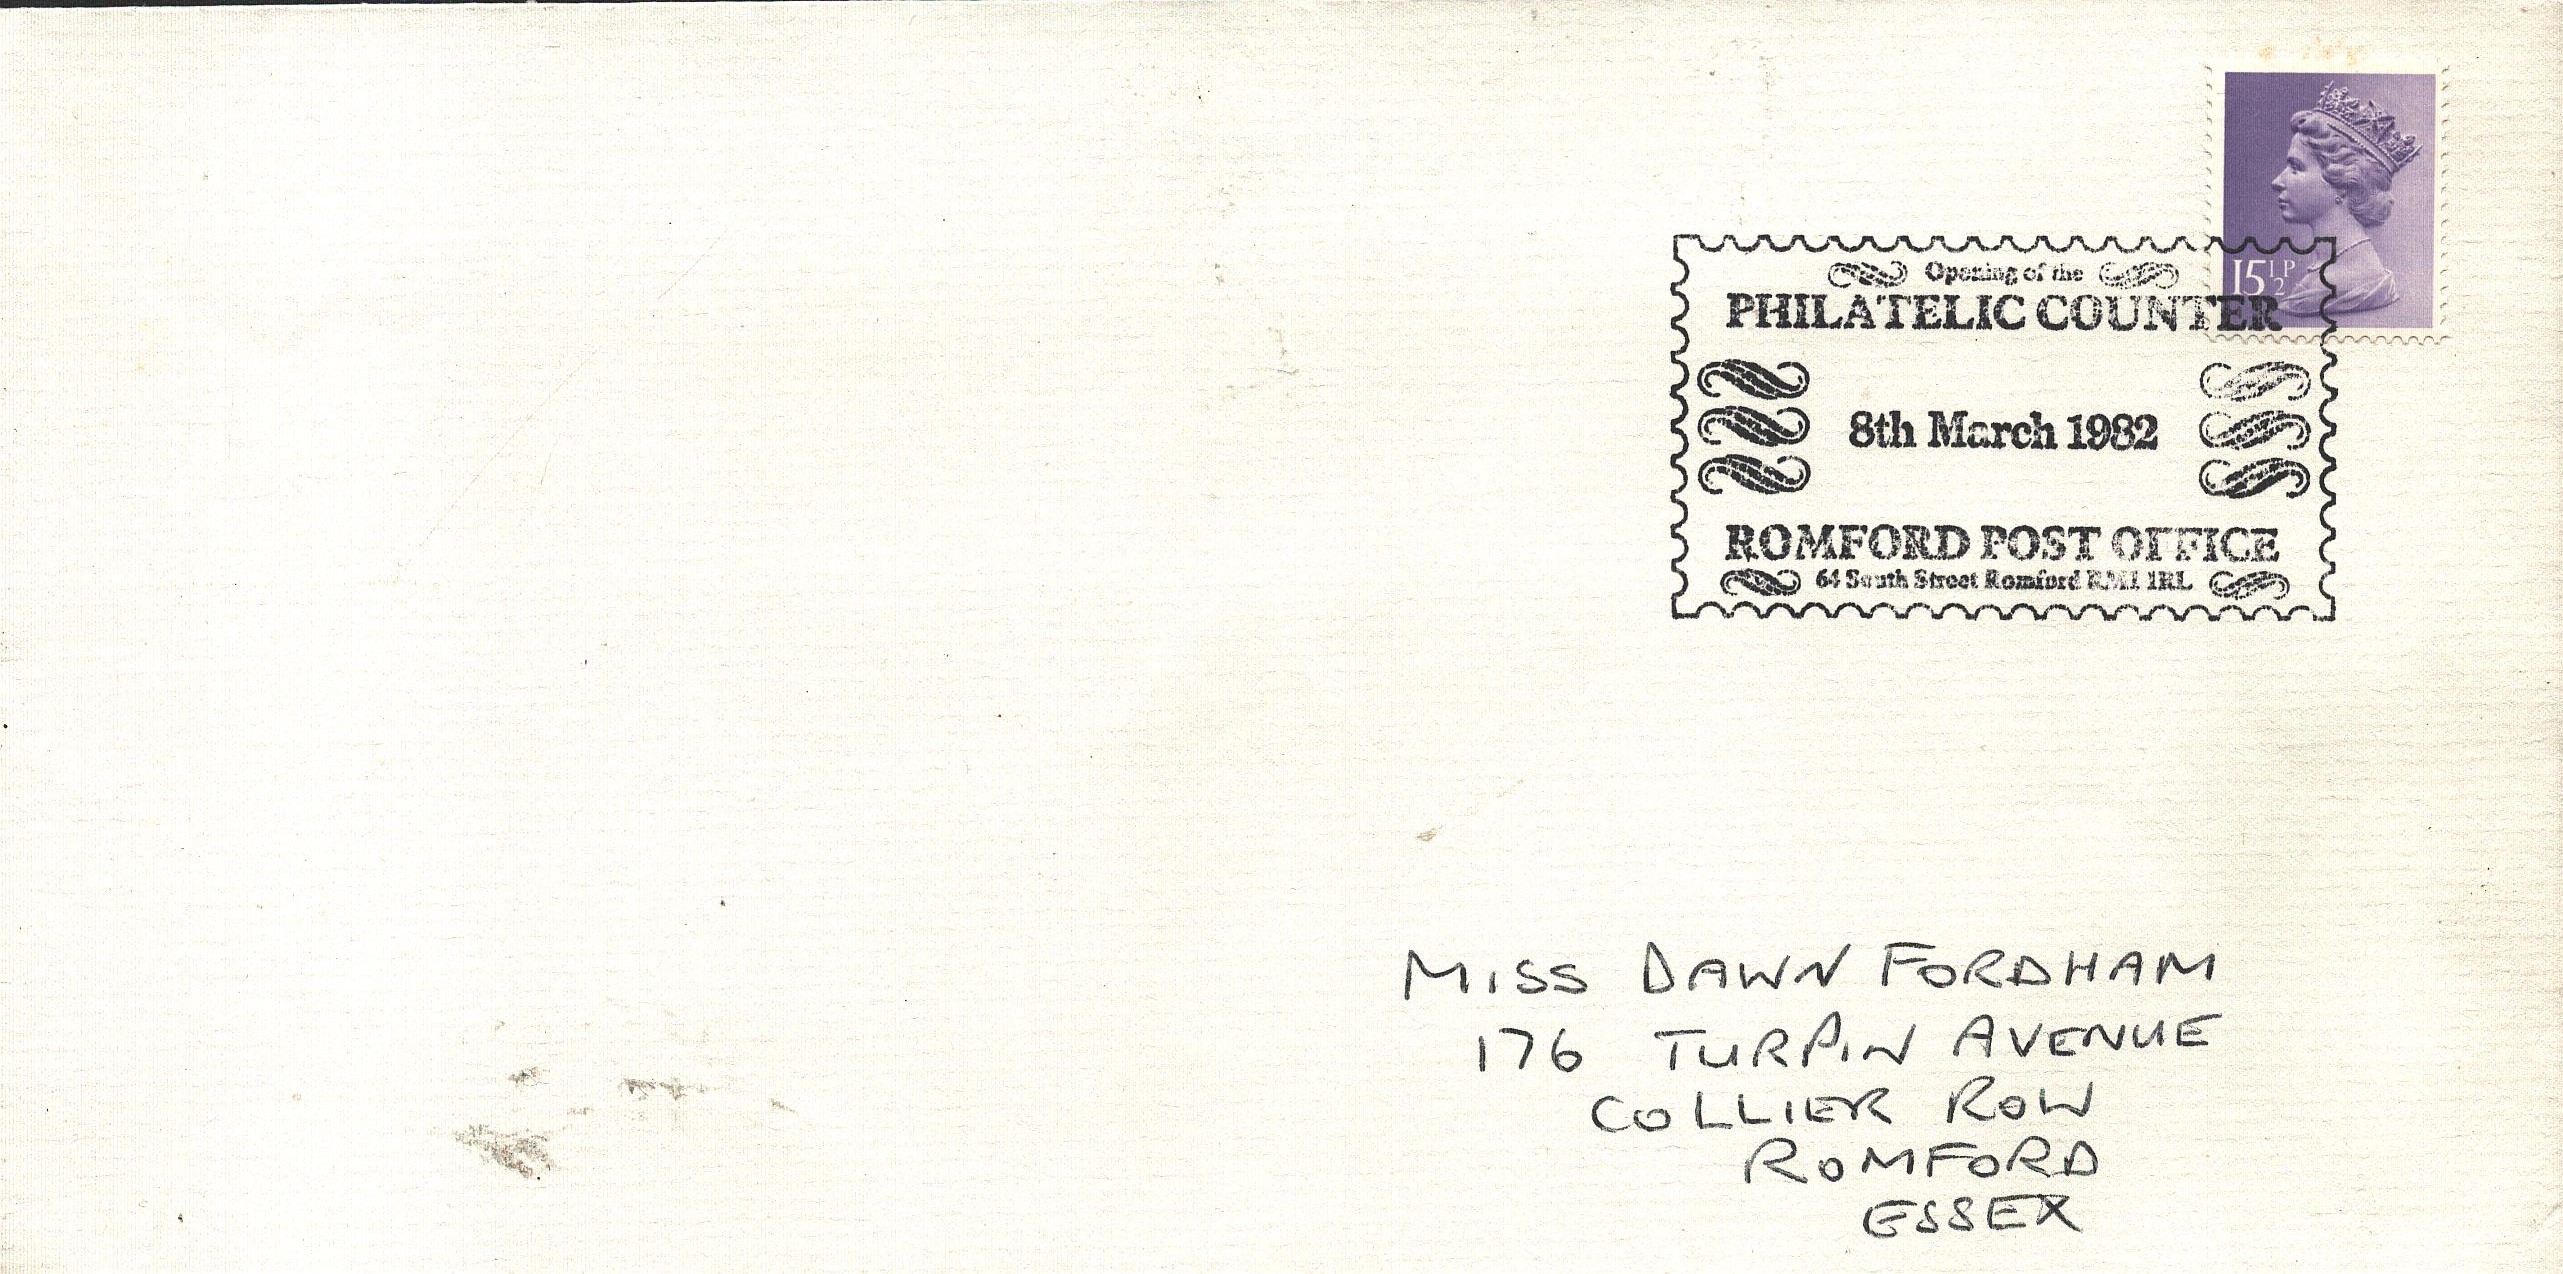 15½P
Opening of the
PHILATELIC COUNTER
8th March 1982
ROMFORD POST OFFICE
64 South Street Romford RM1 1RL
MISS DAWN FORDHAM
176 TURPIN AVENUE
COLLIER ROW
ROMFORD
ESSEX